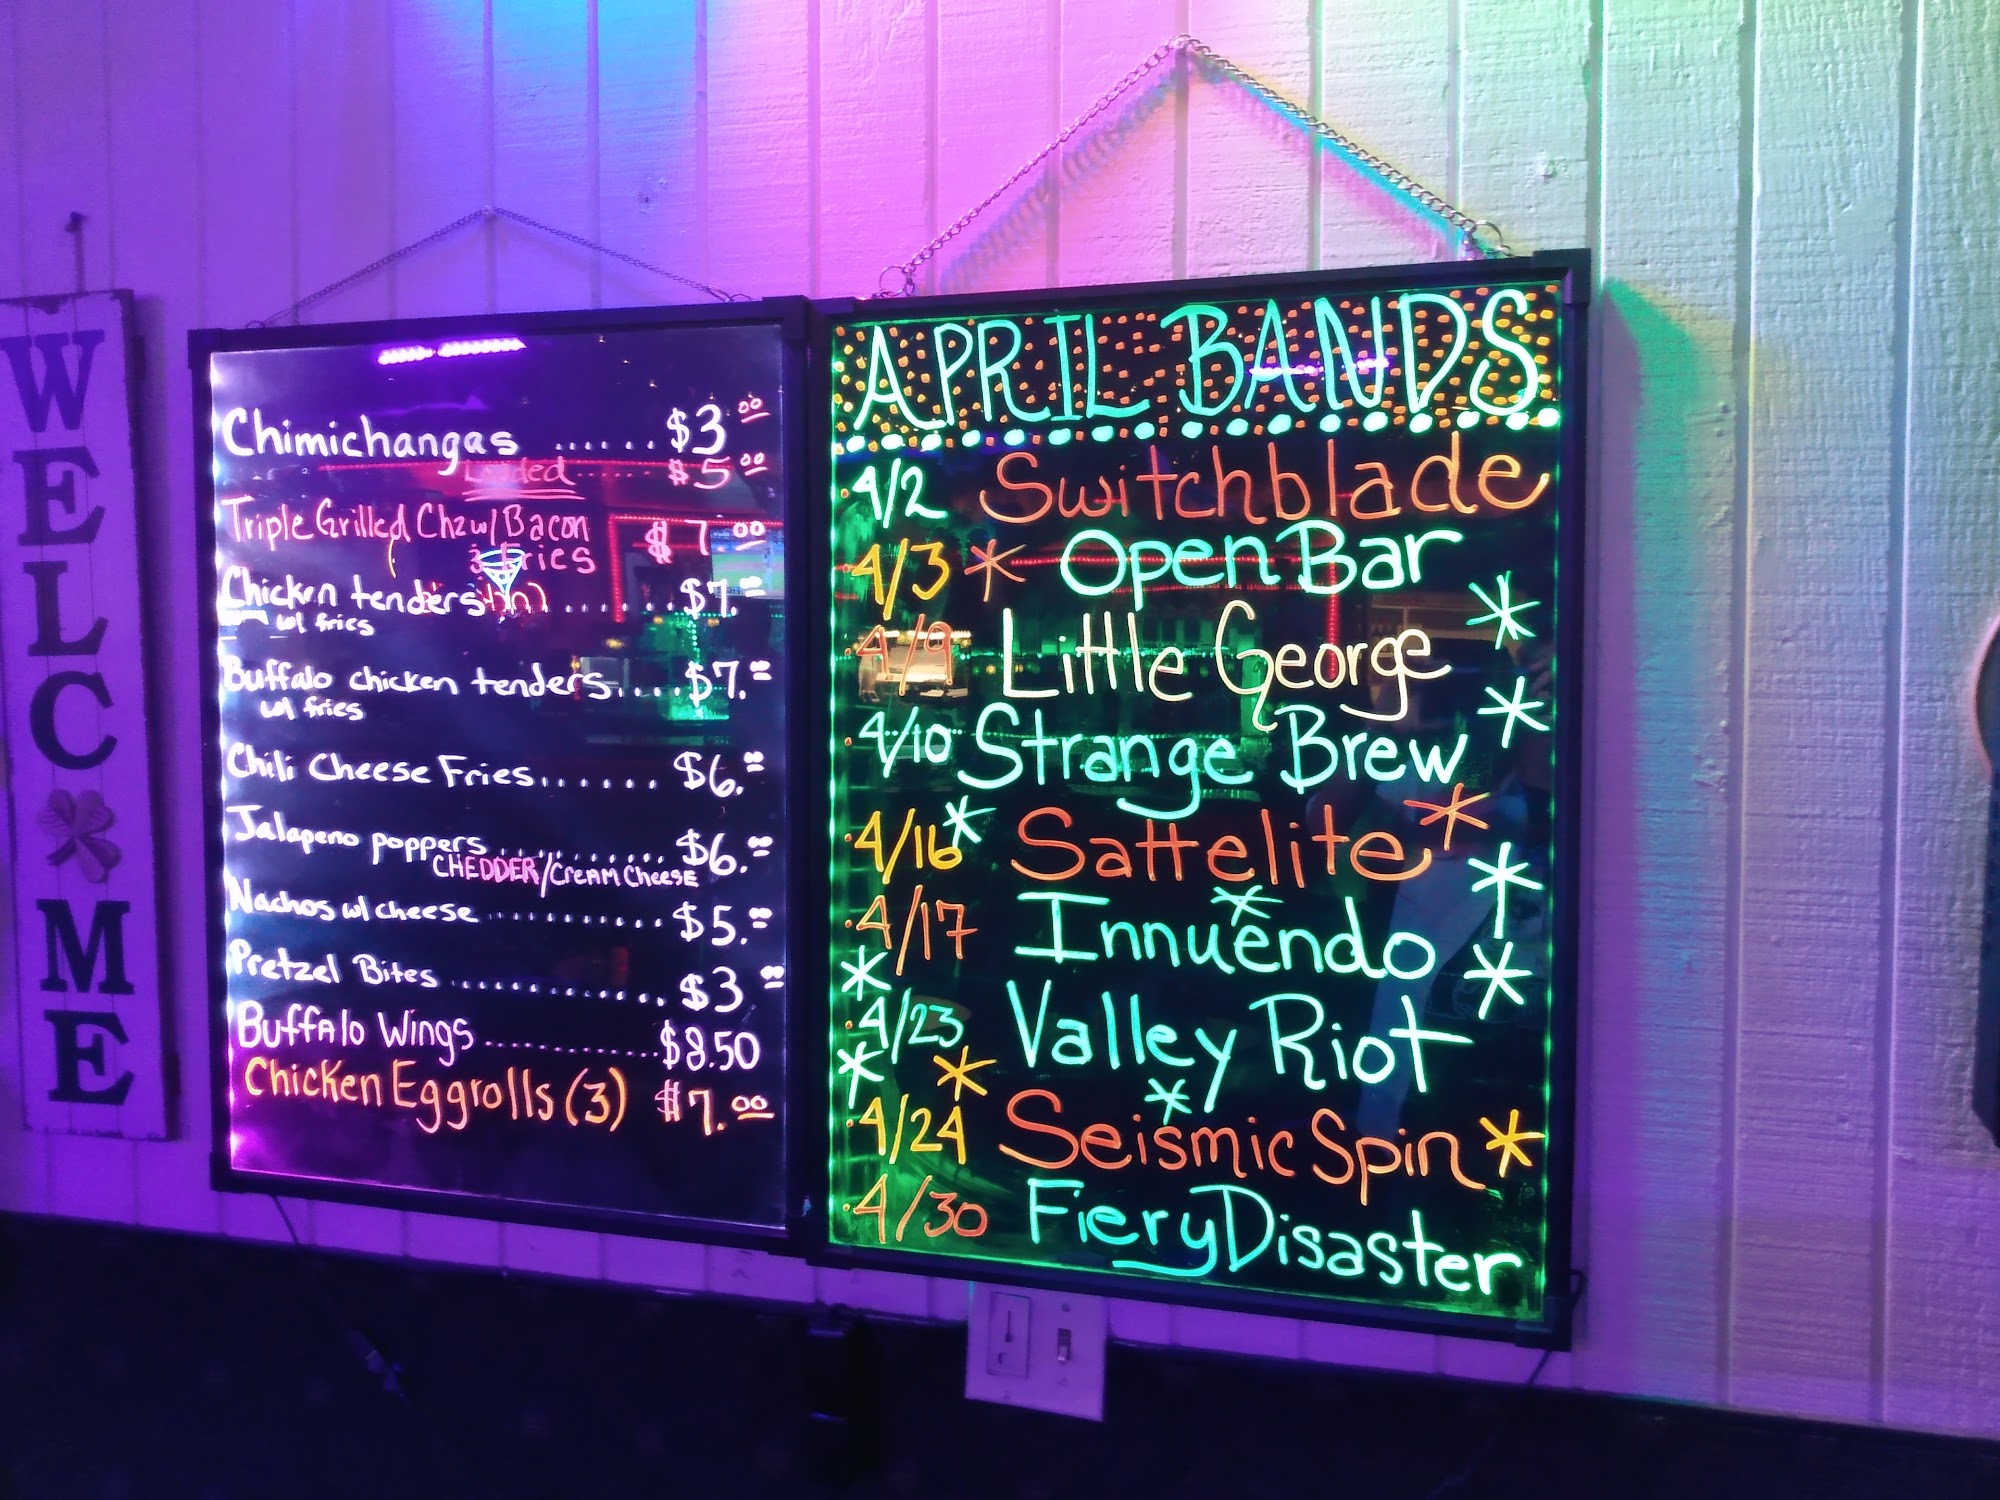 WELC ME
Chimichangas ...... $3.00
Loaded ..... $5.00
Triple Grilled Chz w/ Bacon $7.00
& Fries
Chicken tenders ........ $7.00
w/ fries
Buffalo chicken tenders.... $7.00
w/ fries
Chili Cheese Fries...... $6.00
Jalapeno poppers .......... $6.00
CHEDDER/CREAM CHEESE
Nachos w/ cheese ........... $5.00
Pretzel Bites ............. $3.00
Buffalo Wings ............. $8.50
Chicken Eggrolls (3) $7.00
APRIL BANDS
4/2 Switchblade
4/3 * Open Bar
4/9 Little George
4/10 Strange Brew
4/16 Sattelite
4/17 Innuendo
4/23 Valley Riot
4/24 Seismic Spin
4/30 Fiery Disaster